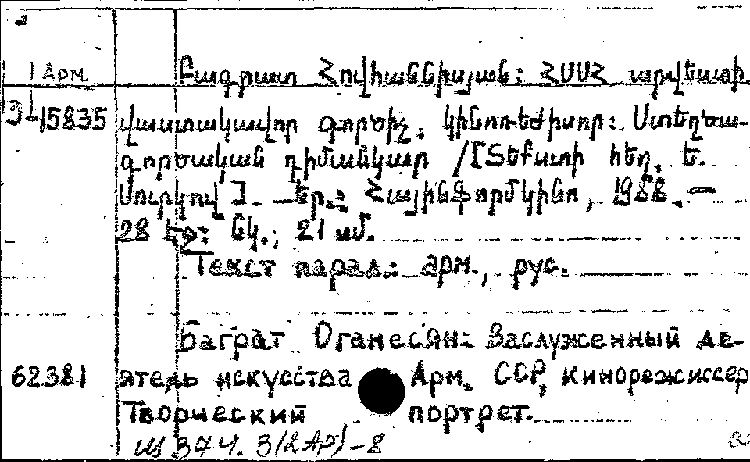 1 Арм
Բագրատ Հովհաննիսյան: ՀՍՍՀ արվեստի
Э4-15835 վաստակավոր գործիչ, կինոռեժիսոր: Ստեղծա-
գործական դիմանկար /[Տեքստի հեղ. Ե.
Մուրկով]. — Եր.: Հայինֆորմկինո, 1988. —
28 էջ: նկ.; 21 սմ.
Текст парал.: арм., рус.
Баграт Оганесян: Заслуженный де-
62381 ятель искусства Арм. ССР, кинорежиссер
Творческий портрет.
Щ 374. 3(2Ар)-8